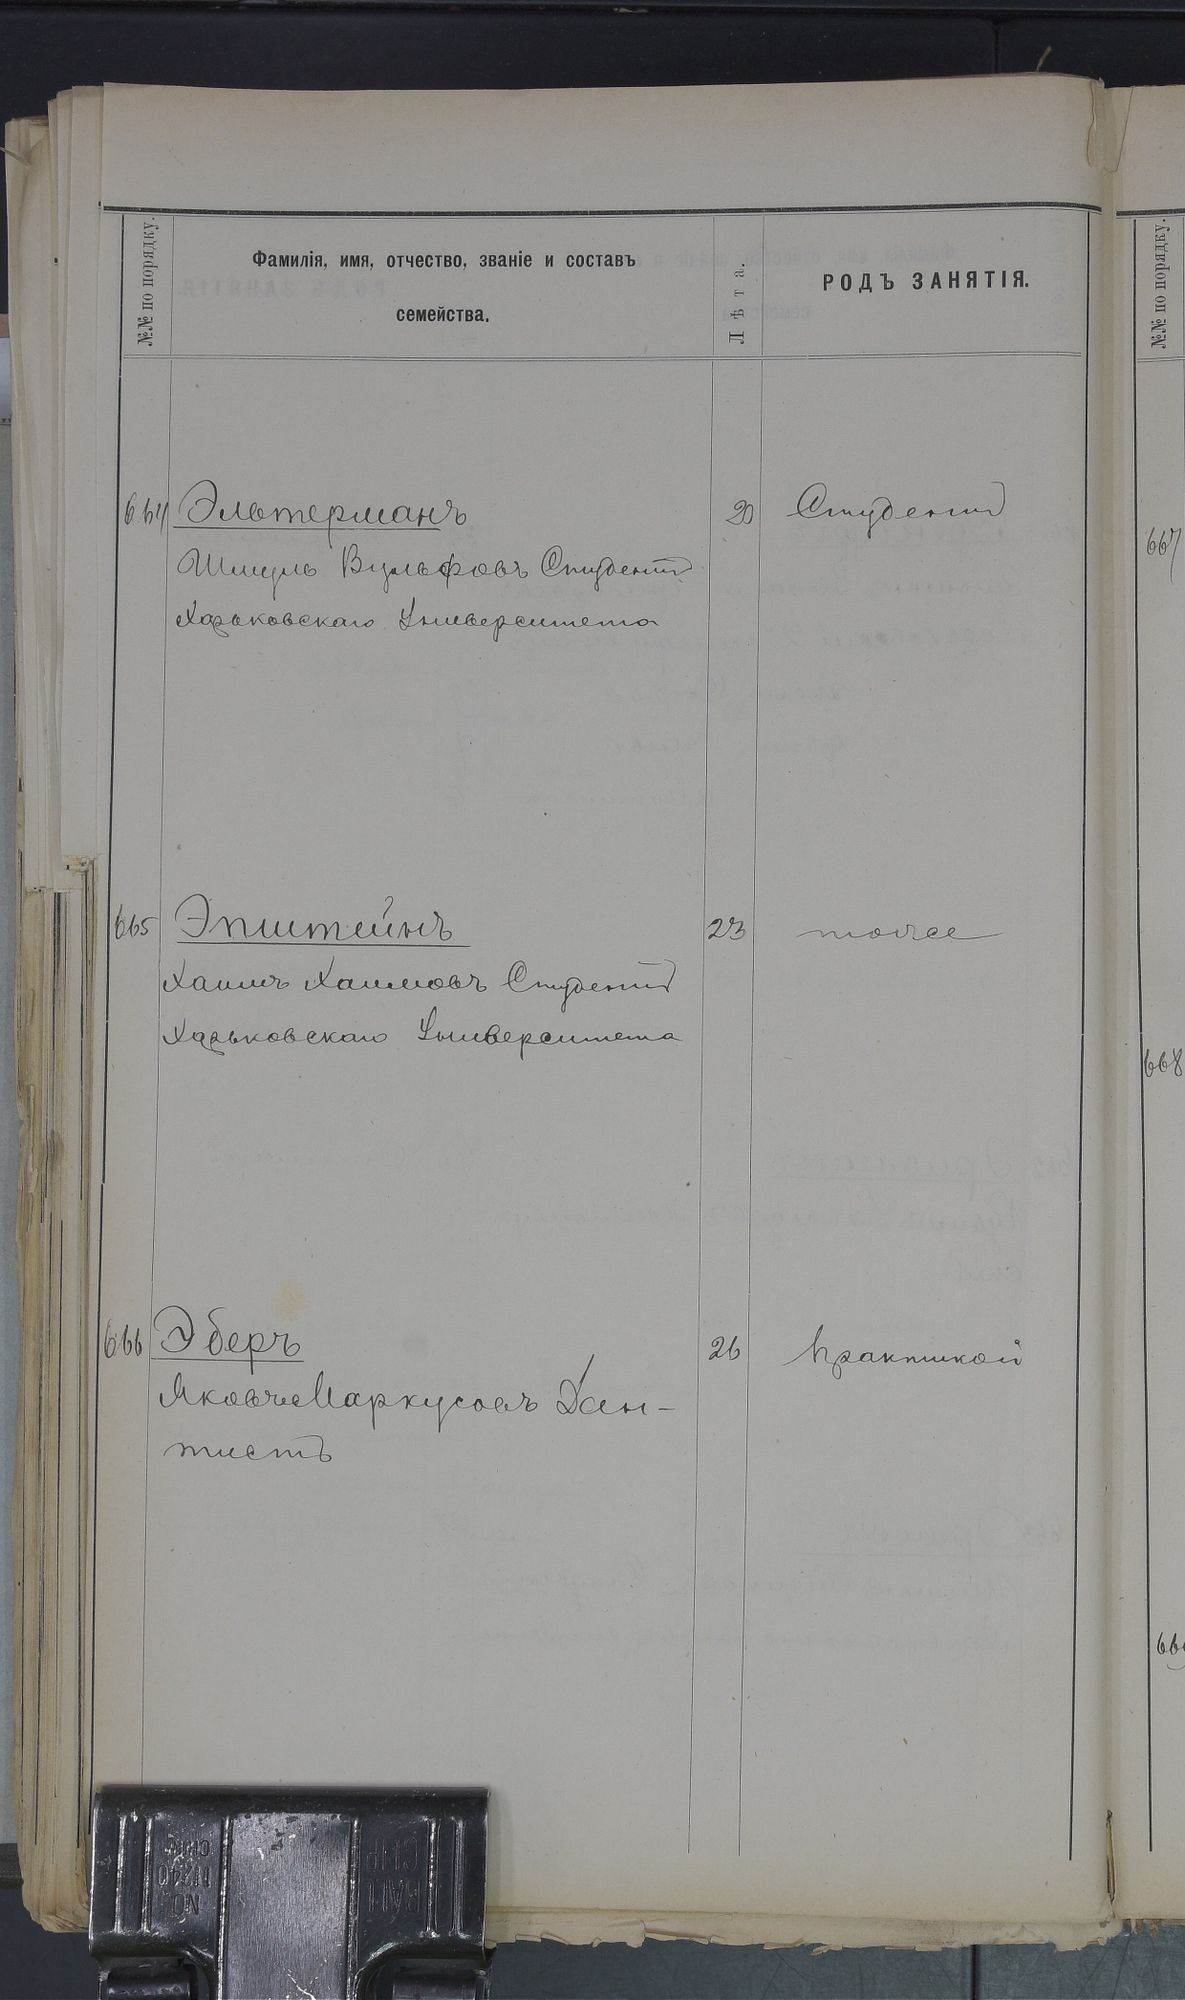 №№ по порядку.
Фамилія, имя, отчество, званіе и составъ
семейства.
Лѣта.
РОДЪ ЗАНЯТІЯ.
№№ по порядку.
664 Эльтерманъ 20 Студентъ
Шмуль Вульфовъ Студентъ
Харьковскаго Университета
667
665 Эпштейнъ 23 тоже
Хаимъ Хаимовъ Студентъ
Харьковскаго Университета
668
666 Эберъ 26 практикой
Яковъ Маркусовъ Дан-
тистъ